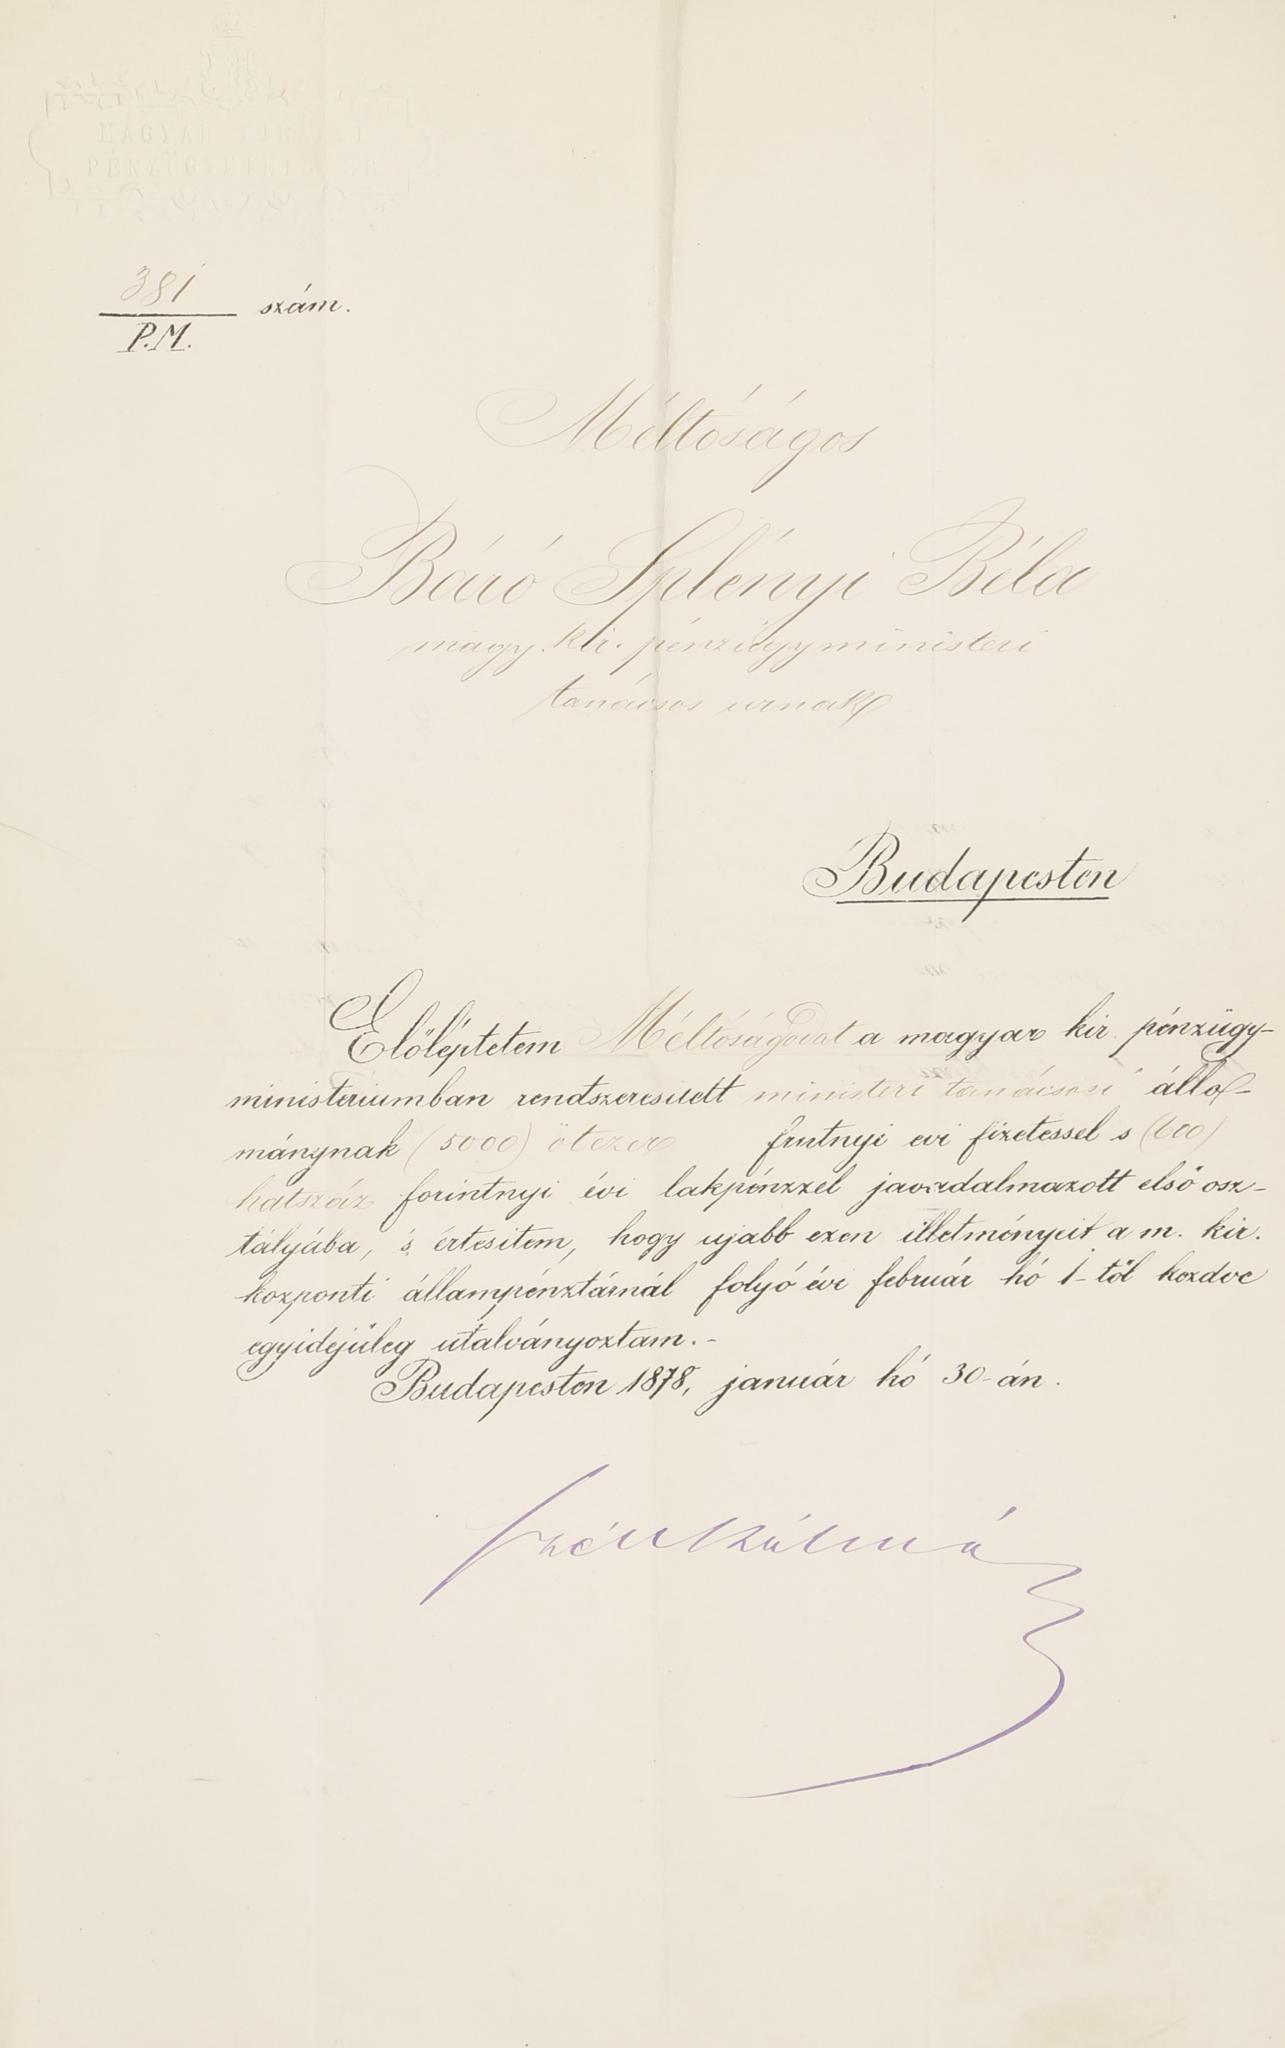 MAGYAR KIRÁLYI
PÉNZÜGYMINISTER
381 szám.
P.M.
Méltóságos
Báró Splényi Béla
magy. kir. pénzügyministeri
tanácsos urnak
Budapesten
Előléptetem Méltóságodat a magyar kir. pénzügy-
ministeriumban rendszeresitett ministeri tanácsosi állo-
mánynak (5000) ötezer frntnyi evi fizetessel s (600)
hatszáz forintnyi évi lakpénzzel javadalmazott első osz-
tályába, s értesitem, hogy ujabb ezen illetményeit a m. kir.
kozponti állampénztárnál folyó évi február hó 1-től kezdve
egyidejűleg utalványoztam.-
Budapesten 1878, január hó 30-án.
Széll Kálmán